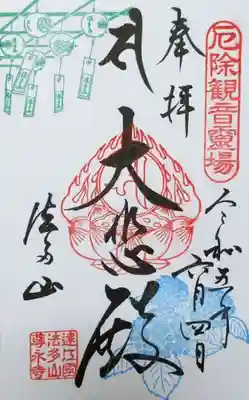 厄除観音霊場
奉拝
令和五年
六月四日
大悲殿
法多山
遠江国
法多山
尊永寺